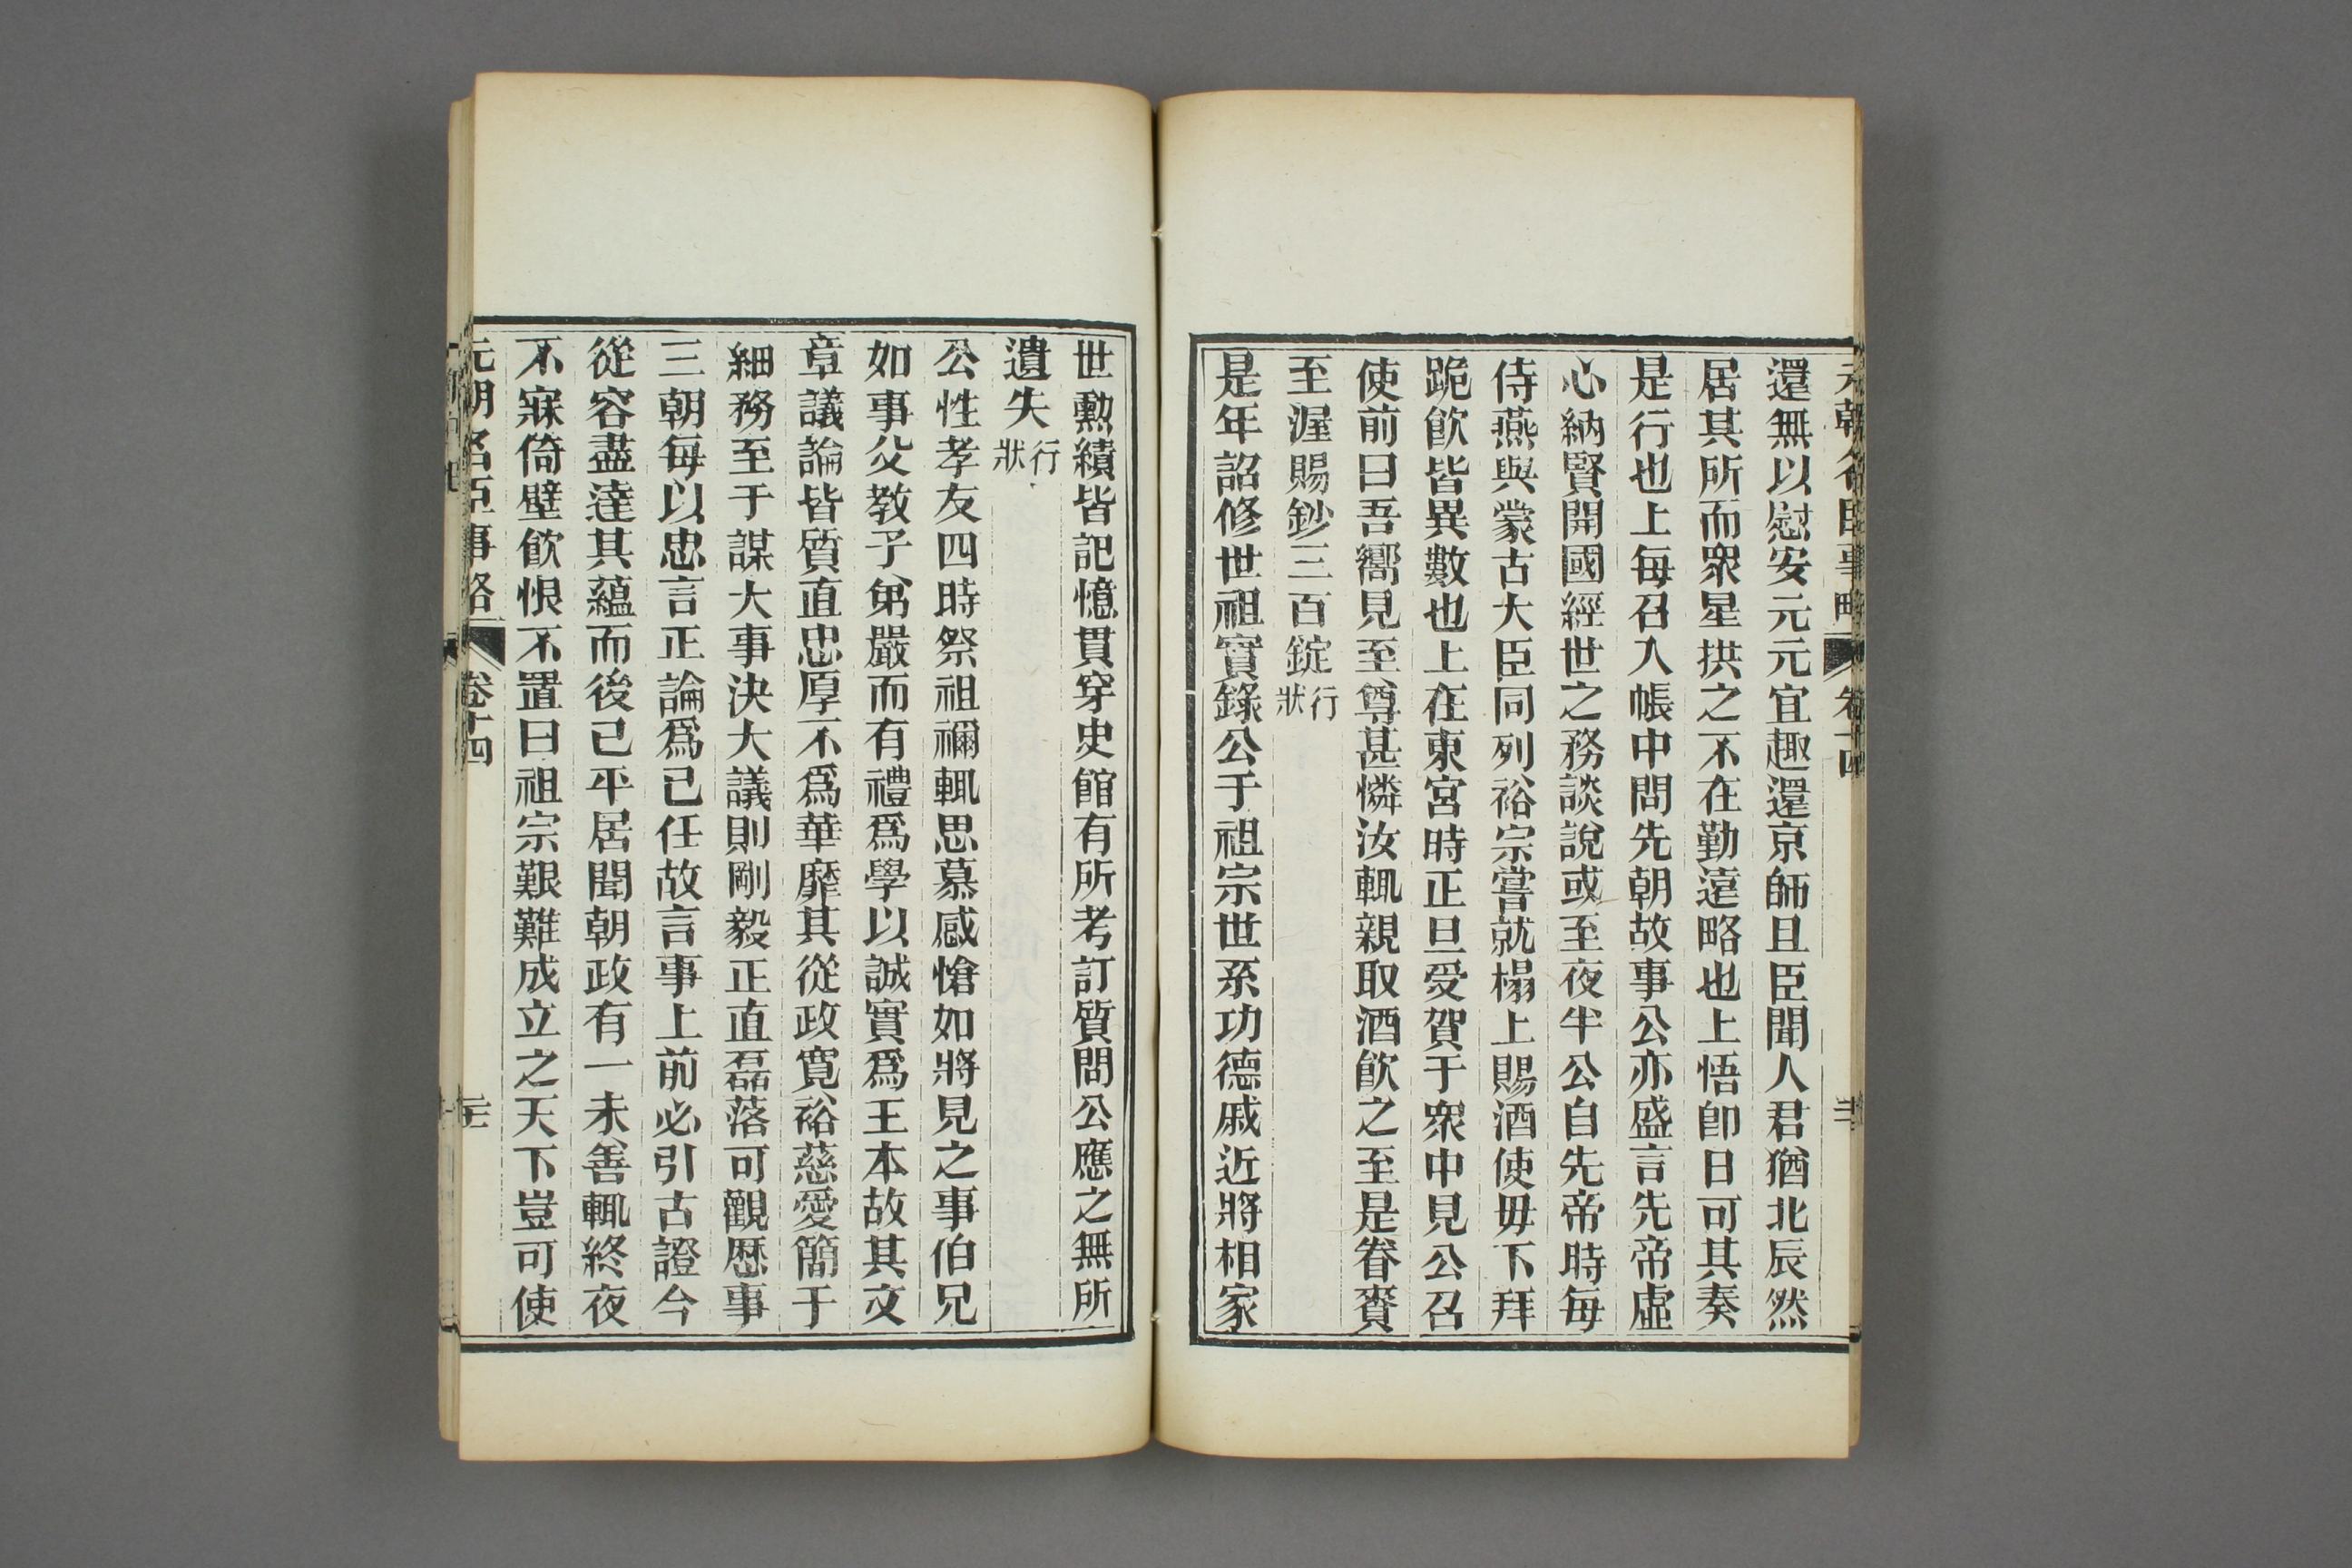 元朝名臣事略 卷十四
還無以慰安元元宜趣還京師且臣聞人君猶北辰然
居其所而眾星拱之不在勤遠略也上悟卽日可其奏
是行也上每召入帳中問先朝故事公亦盛言先帝虛
心納賢開國經世之務談說或至夜半公自先帝時每
侍燕與蒙古大臣同列裕宗嘗就榻上賜酒使毋下拜
跪飮皆異數也上在東宮時正旦受賀于眾中見公召
使前曰吾嚮見至尊甚憐汝輒親取酒飮之至是眷賚
至渥賜鈔三百錠行狀
是年詔修世祖實錄公于祖宗世系功德戚近將相家
世勳績皆記憶貫穿史館有所考訂質問公應之無所
遺失行狀
公性孝友四時祭祖禰輒思慕感愴如將見之事伯兄
如事父教子弟嚴而有禮爲學以誠實爲主本故其文
章議論皆質直忠厚不爲華靡其從政寬裕慈愛簡于
細務至于謀大事決大議則剛毅正直磊落可觀歷事
三朝每以忠言正論爲己任故言事上前必引古證今
從容盡達其蘊而後己平居聞朝政有一未善輒終夜
不寐倚壁飮恨不置曰祖宗艱難成立之天下豈可使
元朝名臣事略 卷十四